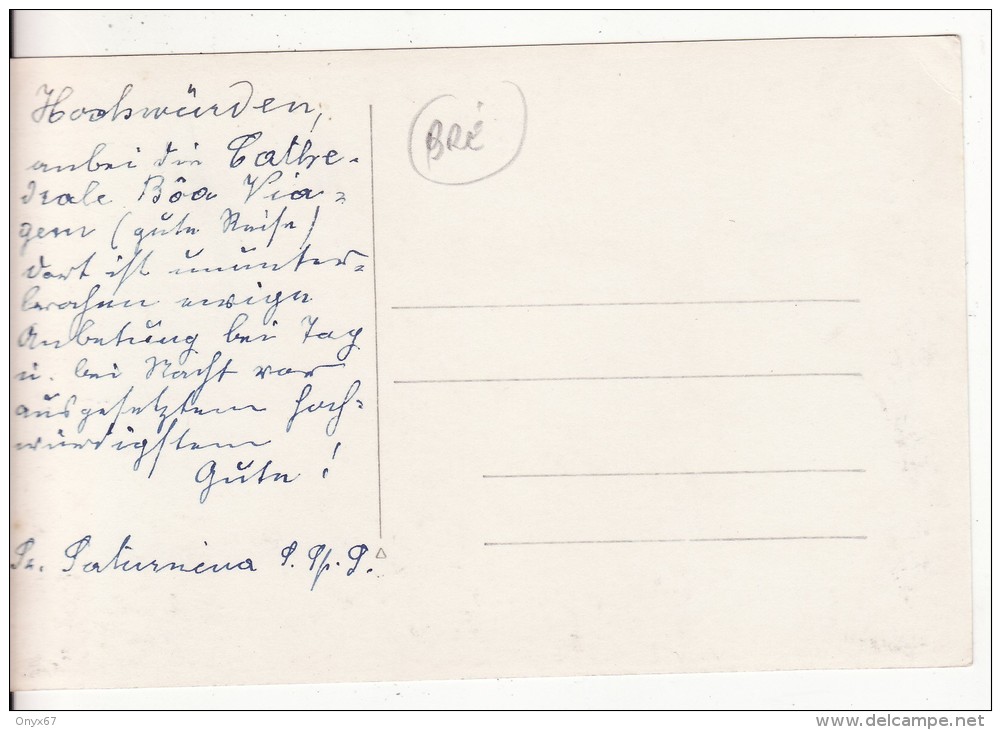 Hochwürden,
anbei die Cathe-
drale Bôa Via-
gem (gute Reise)
dort ist ununter-
brochen ewige
Anbetung bei Tag
u. bei Nacht vor
ausgesetztem hoch-
würdigstem
Gute!
Sr. Saturnina S. Sp. S.
BRÉ
Onyx67
www.delcampe.net